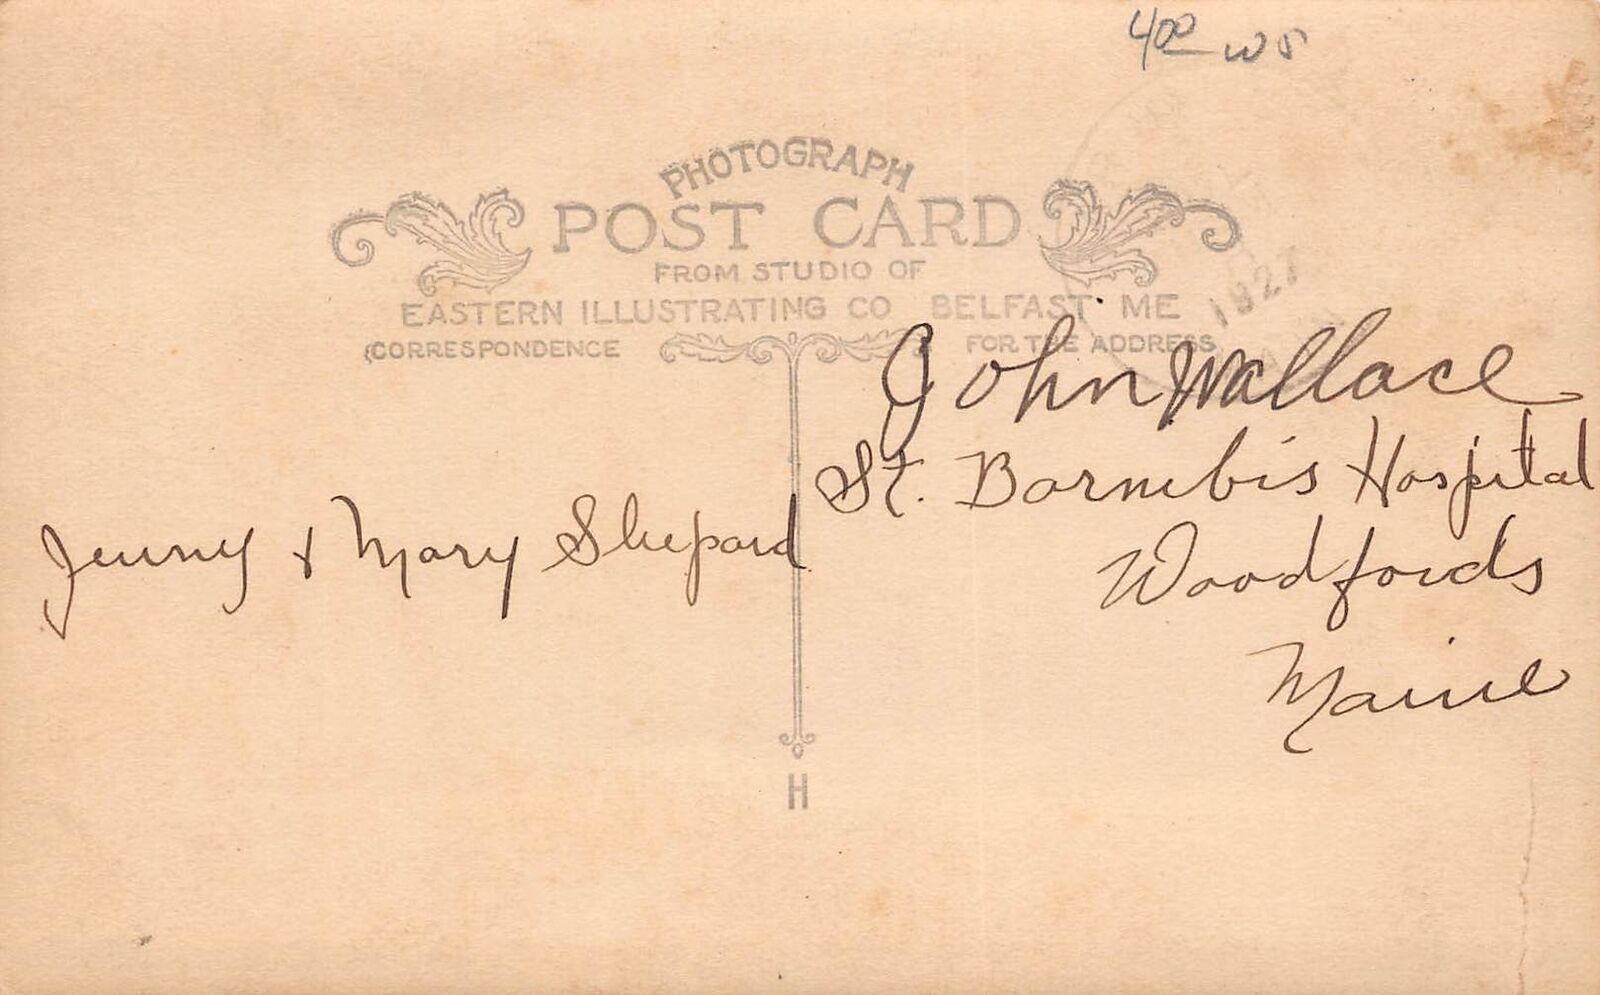 400 WS
PHOTOGRAPH
POST CARD
FROM STUDIO OF
EASTERN ILLUSTRATING CO BELFAST ME
CORRESPONDENCE FOR THE ADDRESS
1927
John Wallace
St. Barnibis Hospital
Woodfords
Maine
Jenny & Mary Shepard
H